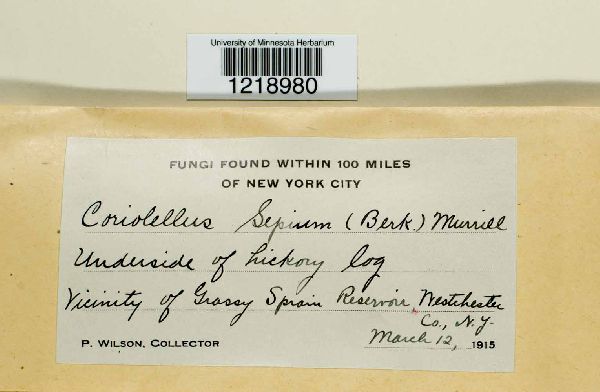 University of Minnesota Herbarium
1218980
FUNGI FOUND WITHIN 100 MILES
OF NEW YORK CITY
Coriolellus Sepium (Berk.) Murrill
Underside of hickory log
Vicinity of Grassy Sprain Reservoir, Westchester
Co., N.Y.
P. WILSON, COLLECTOR March 12, 1915